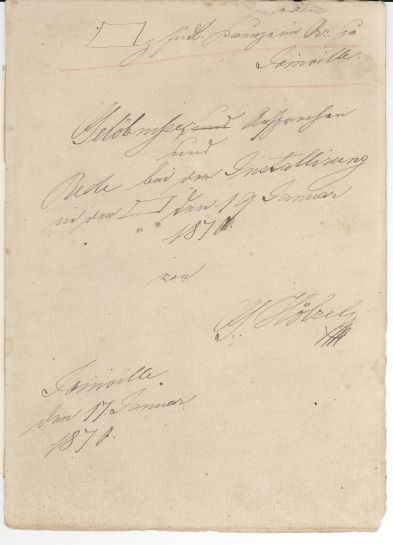 z. südl.
Joinville.
Gelöbnisse, und Ansprachen
und
Rede bei der Installirung
in der den 19 Januar
1870.
von
Joinville
den 17 Januar
1870.